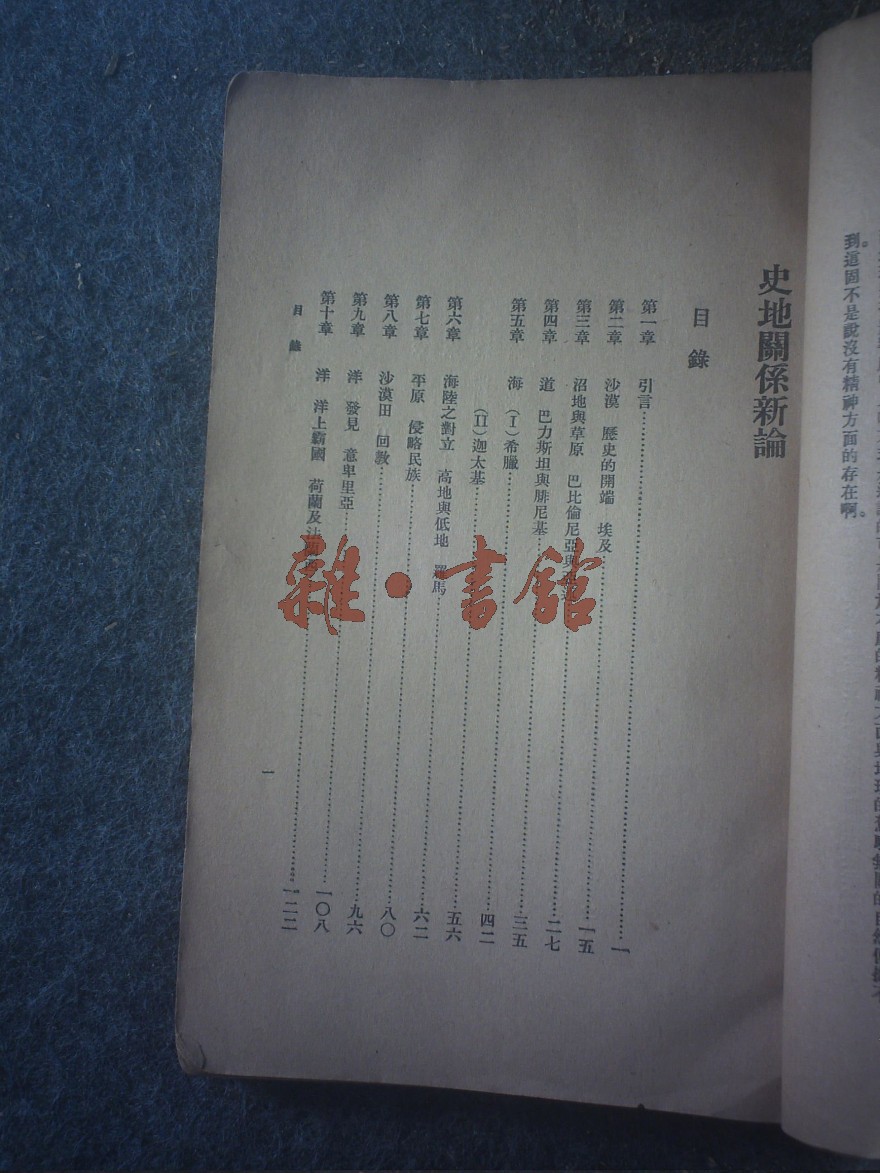 到。這固不是說沒有精神方面的存在啊。
史地關係新論
目錄
第一章 引言……一
第二章 沙漠 歷史的開端 埃及……一五
第三章 沼地與草原 巴比倫尼亞與……二七
第四章 道 巴力斯坦與腓尼基……三五
第五章 海 (I)希臘……四二
(II)迦太基……五六
第六章 海陸之對立 高地與低地 羅馬……六二
第七章 平原 侵略民族……八〇
第八章 沙漠田 回教……九六
第九章 洋 發見 意卑里亞……一〇八
第十章 洋 洋上霸國 荷蘭及法……一二二
目錄
一
雜·書館